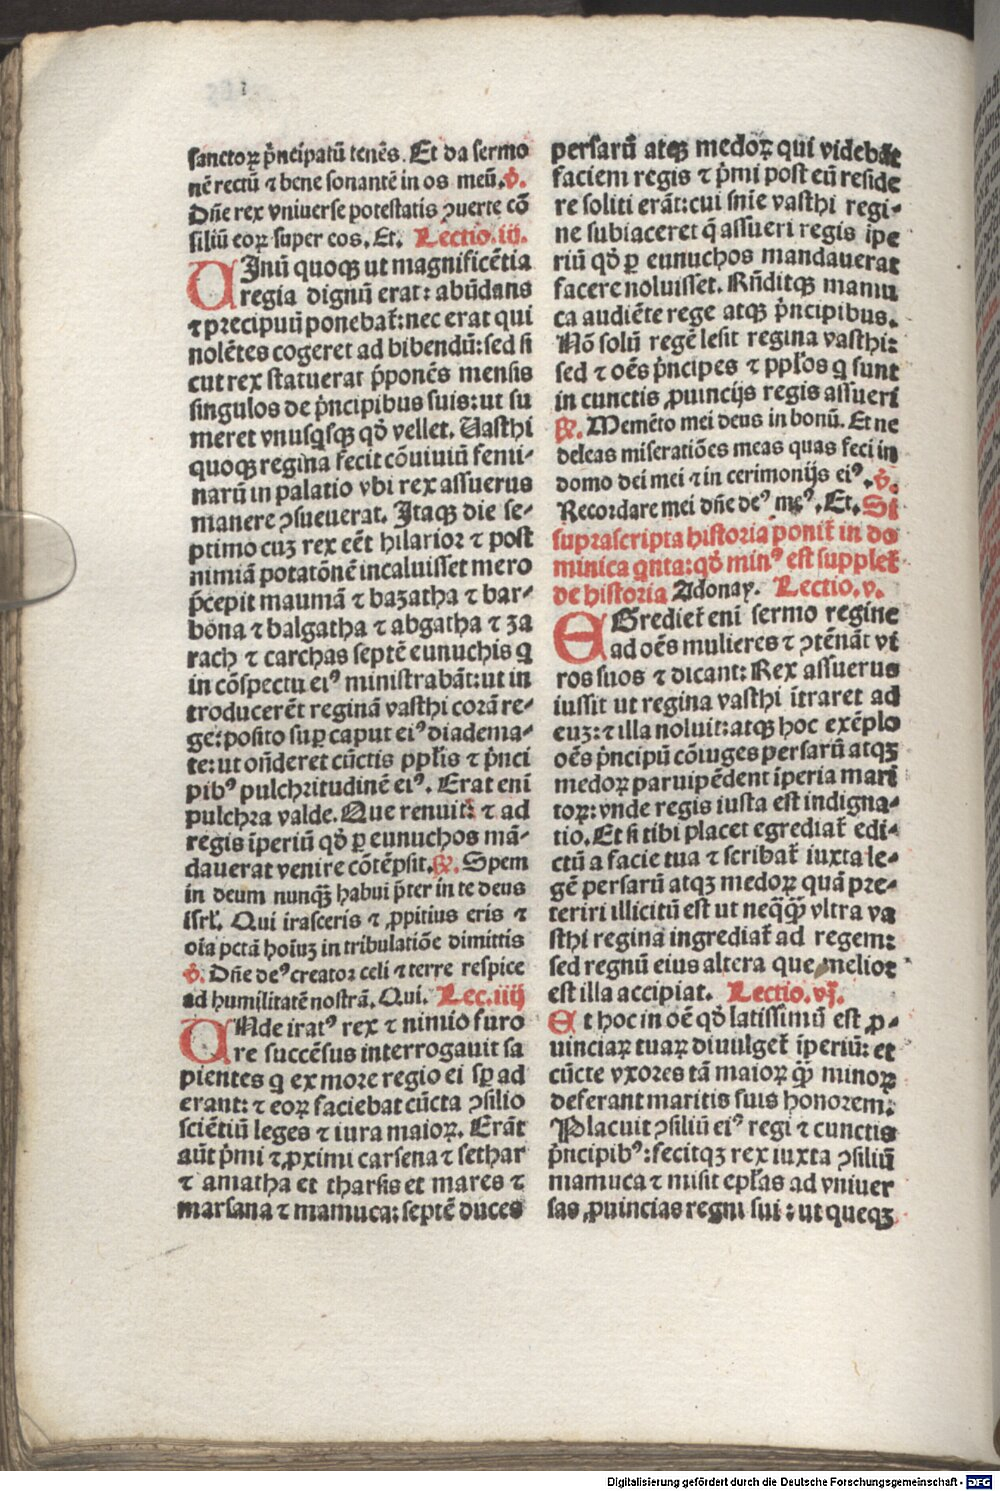 sanctoꝝ p̓ncipatū tenēs. Et da sermo
nē rectū ⁊ bene sonantē in os meū. v̓.
Dn̄e rex vniverse potestatis ꝯuerte cō
siliū eoꝝ super eos. Et. Lectio. iij.
UInū quoqꝫ ut magnificētia
regia dignū erat: abūdans
⁊ precipuū ponebat̄: nec erat qui
nolētes cogeret ad bibendū: sed si
cut rex statuerat p̄ponēs mensis
singulos de p̓ncipibus suis: ut su
meret vnusqsqꝫ qd̓ vellet. Uasthi
quoqꝫ regina fecit cōuiuiū femi-
narū in palatio vbi rex assuerus
manere ꝯsueuerat. Itaqꝫ die se-
ptimo cuꝫ rex eēt hilarior ⁊ post
nimiā potatōnē incaluisset mero
p̄cepit maumā ⁊ bazatha ⁊ bar-
bona ⁊ balgatha ⁊ abgatha ⁊ za
rach ⁊ carchas septē eunuchis q
in cōspectu eiꝰ ministrabāt: ut in
troducerēt reginā vasthi corā re-
ge: posito suꝑ caput eiꝰ diadema-
te: ut on̄deret cūctis pplis ⁊ p̓nci
pibꝰ pulchritudinē eiꝰ. Erat enī
pulchra valde. Que renuit: ⁊ ad
regis īperiū qd̓ ꝑ eunuchos mā-
dauerat venire cōtēpsit. ℟. Spem
in deum nunqꝫ̄ habui p̄ter in te deus
isrl̄. Qui irasceris ⁊ ꝓpitius eris ⁊
oīa pctā hoīuꝫ in tribulatiōe dimittis
v̓. Dn̄e deꝰ creator celi ⁊ terre respice
ad humilitatē nostrā. Qui. Lec. iiij
UNde iratꝰ rex ⁊ nimio furo
re succēsus interrogauit sa
pientes q ex more regio ei sꝑ ad
erant: ⁊ eoꝝ faciebat cūcta ꝯsilio
sciētiū leges ⁊ iura maioꝝ. Erāt
aūt p̓mi ⁊ ꝓximi carsena ⁊ sethar
⁊ amatha et tharsis et mares ⁊
marsana ⁊ mamuca: septē duces
persarū atqꝫ medoꝝ qui videbāt
faciem regis ⁊ p̓mi post eū reside
re soliti erāt: cui sn̄ie vasthi regi-
ne subiaceret q̄ assueri regis ipe
riū qd̓ ꝑ eunuchos mandauerat
facere noluisset. Rn̄ditqꝫ mamu
ca audiēte rege atqꝫ p̓ncipibus.
Nō solū regē lesit regina vasthi:
sed ⁊ oēs p̓ncipes ⁊ pplos q sunt
in cunctis ꝓuincijs regis assueri
℟. Memēto mei deus in bonū. Et ne
deleas miseratiōes meas quas feci in
domo dei mei ⁊ in cerimonijs eiꝰ. v̓.
Recordare mei dn̄e deꝰ mꝰ. Et. Si
suprascripta historia ponit̄ in do
minica qnta: qd̓ minꝰ est supplet̄
de historia Adonay. Lectio. v.
EGrediet̄ enī sermo regine
ad oēs mulieres ⁊ ꝯtēnāt vi
ros suos ⁊ dicant: Rex assuerus
iussit ut regina vasthi ītraret ad
euꝫ: ⁊ illa noluit: atqꝫ hoc exēplo
oēs p̓ncipū cōiuges persarū atqꝫ
medoꝝ paruipēdent īperia mari
toꝝ: vnde regis iusta est indigna-
tio. Et si tibi placet egrediat̄ edi-
ctū a facie tua ⁊ scribat̄ iuxta le-
gē persarū atqꝫ medoꝝ quā pre-
teriri illicitū est ut neqq̄ꝫ vltra va
sthi regina ingrediat̄ ad regem:
sed regnū eius altera que melior
est illa accipiat. Lectio. vj.
Et hoc in oē qd̓ latissimū est ꝓ-
uinciaꝝ tuaꝝ diuulget̄ īperiū: et
cūcte vxores tā maioꝝ qꝫ̄ minoꝝ
deferant maritis suis honorem.
Placuit ꝯsiliū eiꝰ regi ⁊ cunctis
p̓ncipibꝰ: fecitqꝫ rex iuxta ꝯsiliū
mamuca ⁊ misit epl̄as ad vniuer
sas ꝓuincias regni sui: ut queqꝫ
Digitalisierung gefördert durch die Deutsche Forschungsgemeinschaft - DFG